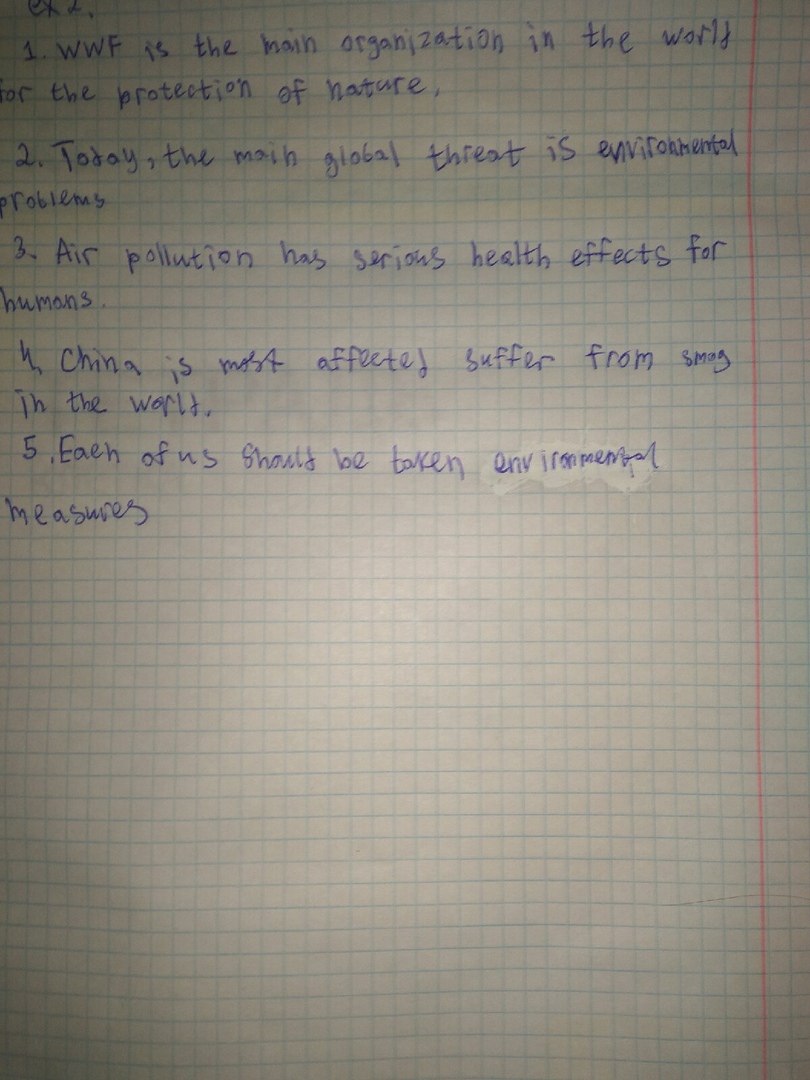 ex 2.
1. WWF is the main organization in the world
for the protection of nature.
2. Today, the main global threat is environmental
problems
3. Air pollution has serious health effects for
humans.
4. China is most affected suffer from smog
in the world.
5. Each of us should be taken environmental
measures